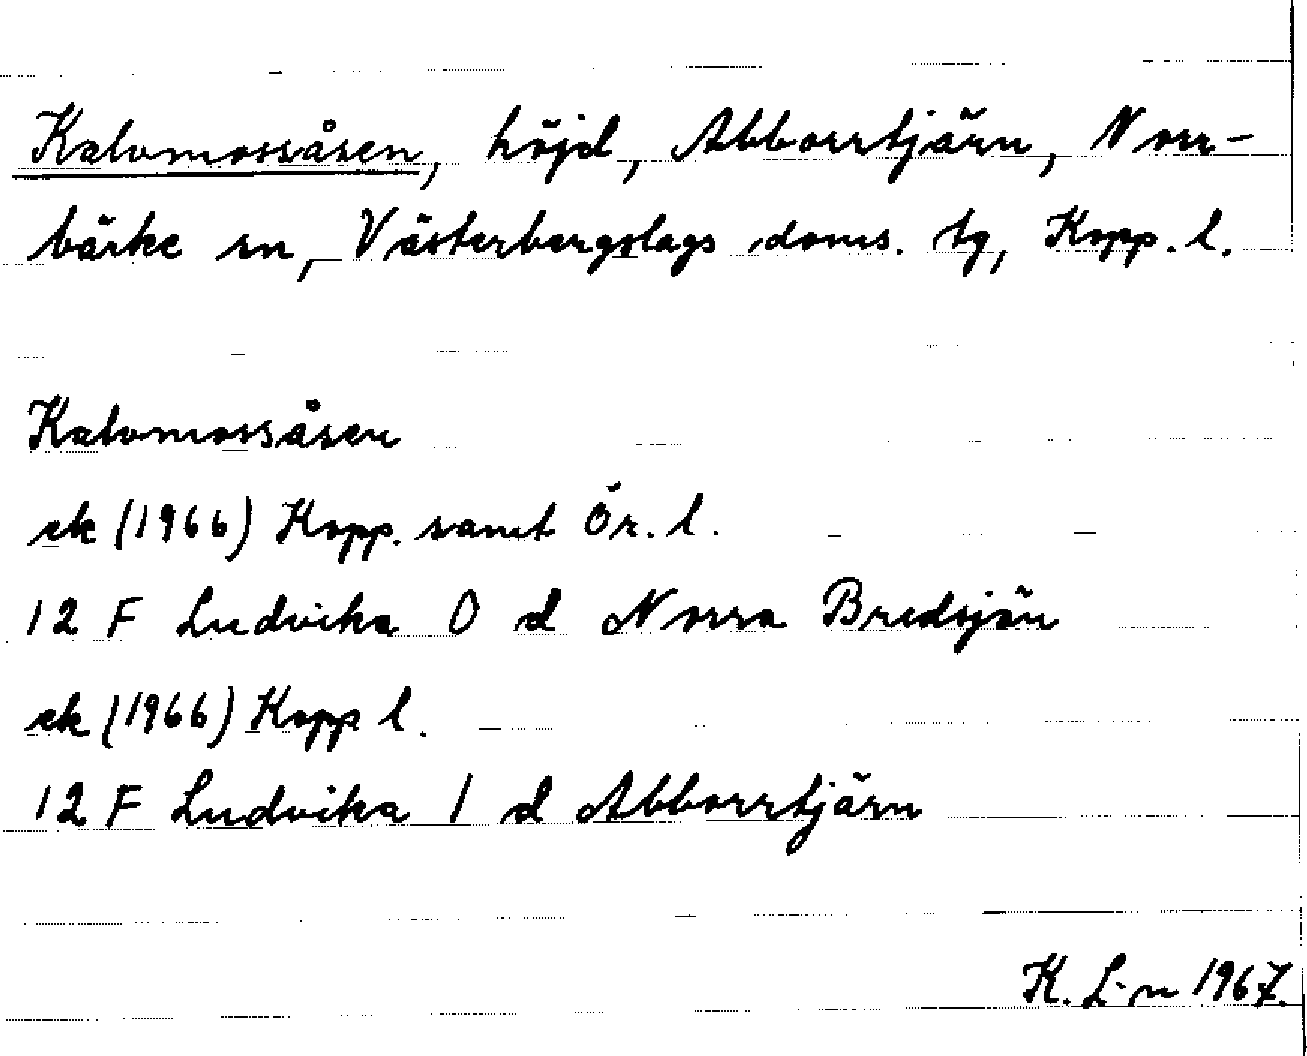 Kalvmossåsen, höjd, Abborrtjärn, Norr-
bärke sn, Västerbergslags doms. tg, Kopp. l.
Kalvmossåsen
ek (1966) Kopp. samt Ör. l.
12 F Ludvika 0 d Norra Bredsjön
ek (1966) Kopp l.
12 F Ludvika 1 d Abborrtjärn
K. L-n 1967.